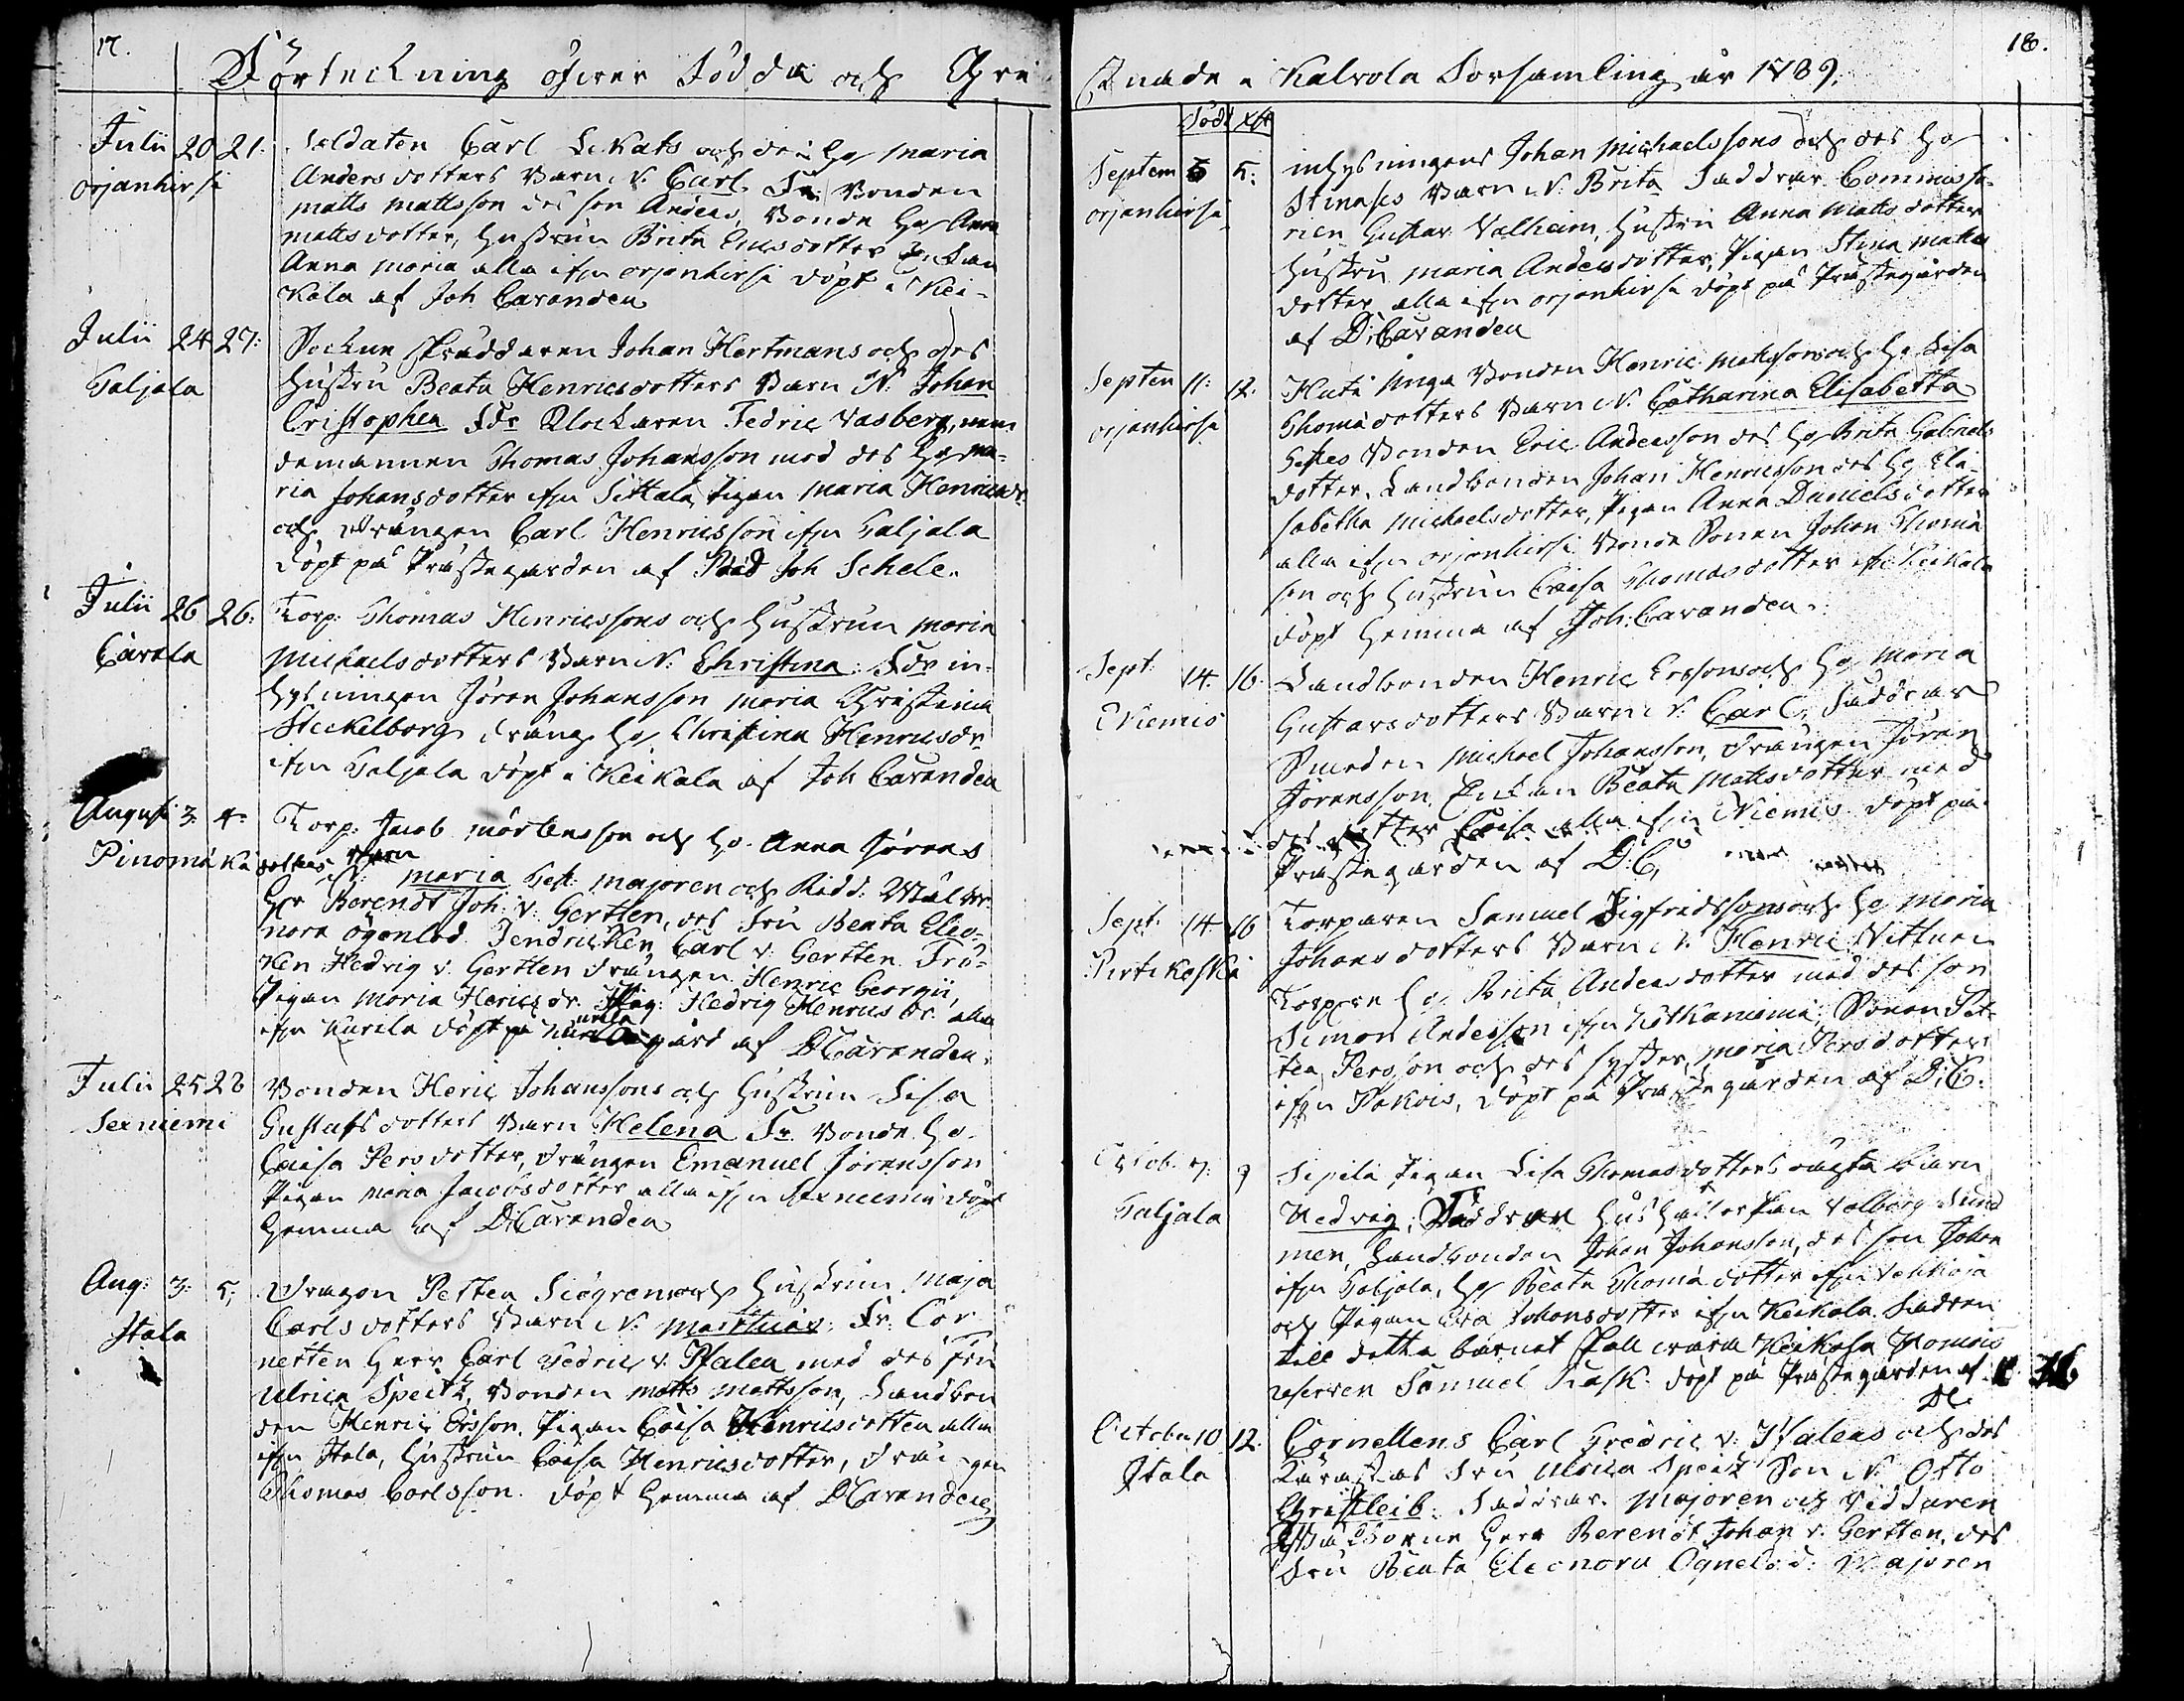 17.
Förteckning öfwer Födda och Chri
Julii 20 21. Soldaten Carl Lekats och des Ho maria
orjanhirsi Anders dotters Barn N. Carl Fr. Bonden
matts mattsson des son Anders, Bonde Ho Anna
matts dotter, Hustrun Brita Ericsdotter Enkan
Anna maria alla ifrn orjanhirsi döpt i Kei-
kala af Joh Cavander
Julii 24 27: Sockne skräddaren Johan Hertmans och des
Taljala Hustru Beata Henricsdotters Barn N. Johan
Cristopher Fdr Klockaren Fedric Vasberg, nem
demannen Thomas Johansson med des Ho ma-
ria Johansdotter ifrn Sittala, Pigan maria Henricsdr
och Drängen Carl Henricsson ifrn Taljala
döpt på Prästegården af Joh Schele.
Julii 26 26: Torp: Thomas Henricssons och Hustrun maria
Cavala Michaelsdotters Barn N: Christina: Fdr in-
hysningen Jören Johansson maria Christina
Steckelborg dräng Ho Christina Henricsdr
ifrn Taljala döpt i Keikala af Joh Cavander
August 3. 4. Torp: Jacob mårtensson och Ho. Anna Jörens
Pinomäkä dotters Barn
N: maria Test: majoren och Ridd: Wälbr
Hr Berendt Joh: v. Gertten, des Fru Beata Eleo-
nora ögonlod Fendricken Carl v. Gertten Frö-
ken Hedvig v. Gertten Drängen Henric Georgii,
Pigan Maria Herics dr. Pig: Hedvig Henrics dr. alla
ifrn Kurala döpt på Kurala gård af D Cavander.
Julii 25 28 Bonden Heric Johanssons och Hustrun Lisa
Sexniemi Gustafs dotters Barn Helena Fr. Bonde Ho.
Caisa Persdotter, Drängen Emanuel Jöransson
Pigan maria Jacobsdotter alla ifrn Sexniemi döpt
hemma af D: Cavander
Aug: 3: 5; Dragon Petter Siögrens och Hustrun Maja
Itala Carlsdotters Barn N. Matthias: Fr: Cor
netten Herr Carl Fedric v. Pfaler med des fru
Ulrica Speitz, Bonden matts mattsson, Landbon
den Henric Ersson, Pigan Caisa Henricsdotter alla
ifrn Itala, Hustrun Caisa Henricsdotter, Drängen
Thomas Carlsson. döpt hemma af D Cavander
18.
stnade i Kalvola Forsamling år 1789.
Född Xst
Septem 5 5. inhysningens Johan Michaelssons och des Ho
orjanhirsi Stinases Barn N. Brita Faddrar Commissa-
rien Gustav Valheim, hustru Anna Mattsdotter
hustru maria Andersdotter, Pigan Stina matts
dotter alla ifrn orjanhirsi döpt på Prästegården
af D: Cavander
Septem 11: 12. Bonden Henric mattssons och Ho Lisa
orjanhirsi Thomädotters Barn N. Catharina Elisabetta
Testes Bonden Eric Andersson des Ho Brita Gabriels
dotter, Landbonden Johan Henricsson des Ho Eli-
sabetha Michaelsdotter, Pigan Anna Danielsdotter
alla ifrn orjanhirsi Bonde Sonen Johan Thomä
son och Hustrun Caisa Thomasdotter ifrn Keikala
döpt hemma af Joh: Cavander.
Sept: 14. 16. Landbonden Henric Erssons och Ho Maria
Niemis Gustavsdotters Barn N: Carl, Faddrar
Smeden Michael Johansson, Drängen Jören
Jörensson, Enkan Beata Mattsdotter med
des dotter Caisa alla ifrn Niemis döpt på
Prästegården af D: C,
Sept: 14 16 Torparen Samuel Sigfridssons och Ho Maria
Pirtikoski Johansdotters Barn N. Henric Vittnen
Torpare Ho. Brita Andersdotter med des son
Simon Andersson ifrn Kotkaniemi, Sonen Pet-
ter Persson och des syster, Maria Persdotter
ifrn Pakois, döpt på Prästegården af D: C.
Octob. 7: 9 Sipilä Pigan Lisa Thomasdotters oägta barn
Taljala Hedvig; Faddrar Hushållerskan Valborg Lund
men, Landbonden Johan Johansson, des son Johan
ifrn Taljala, Ho Beata Thomädotter ifrn Vehkoja
och Pigan Eva Johansdotter ifrn Keikala Fadren
till detta barnet skall wara Keikala
reserven Samuel Rask. döpt på Prästegården af
DC
October 10 12. Cornettens Carl Fredric v: Pfalers och des
Itala Kärastas Fru Ulrica Speitz Son N. Otto
Christleib. Faddrar. Majoren och Riddaren
Herr Berendt Johan v. Gertten, des
Fru Beata Eleonora Ognelod. Majoren